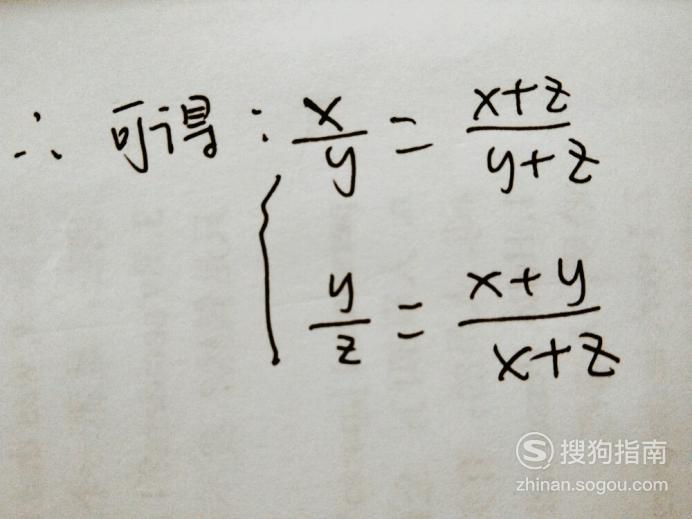 ∴ 可得: x/y = x+z/y+z
y/z = x+y/x+z
搜狗指南
zhinan.sogou.com